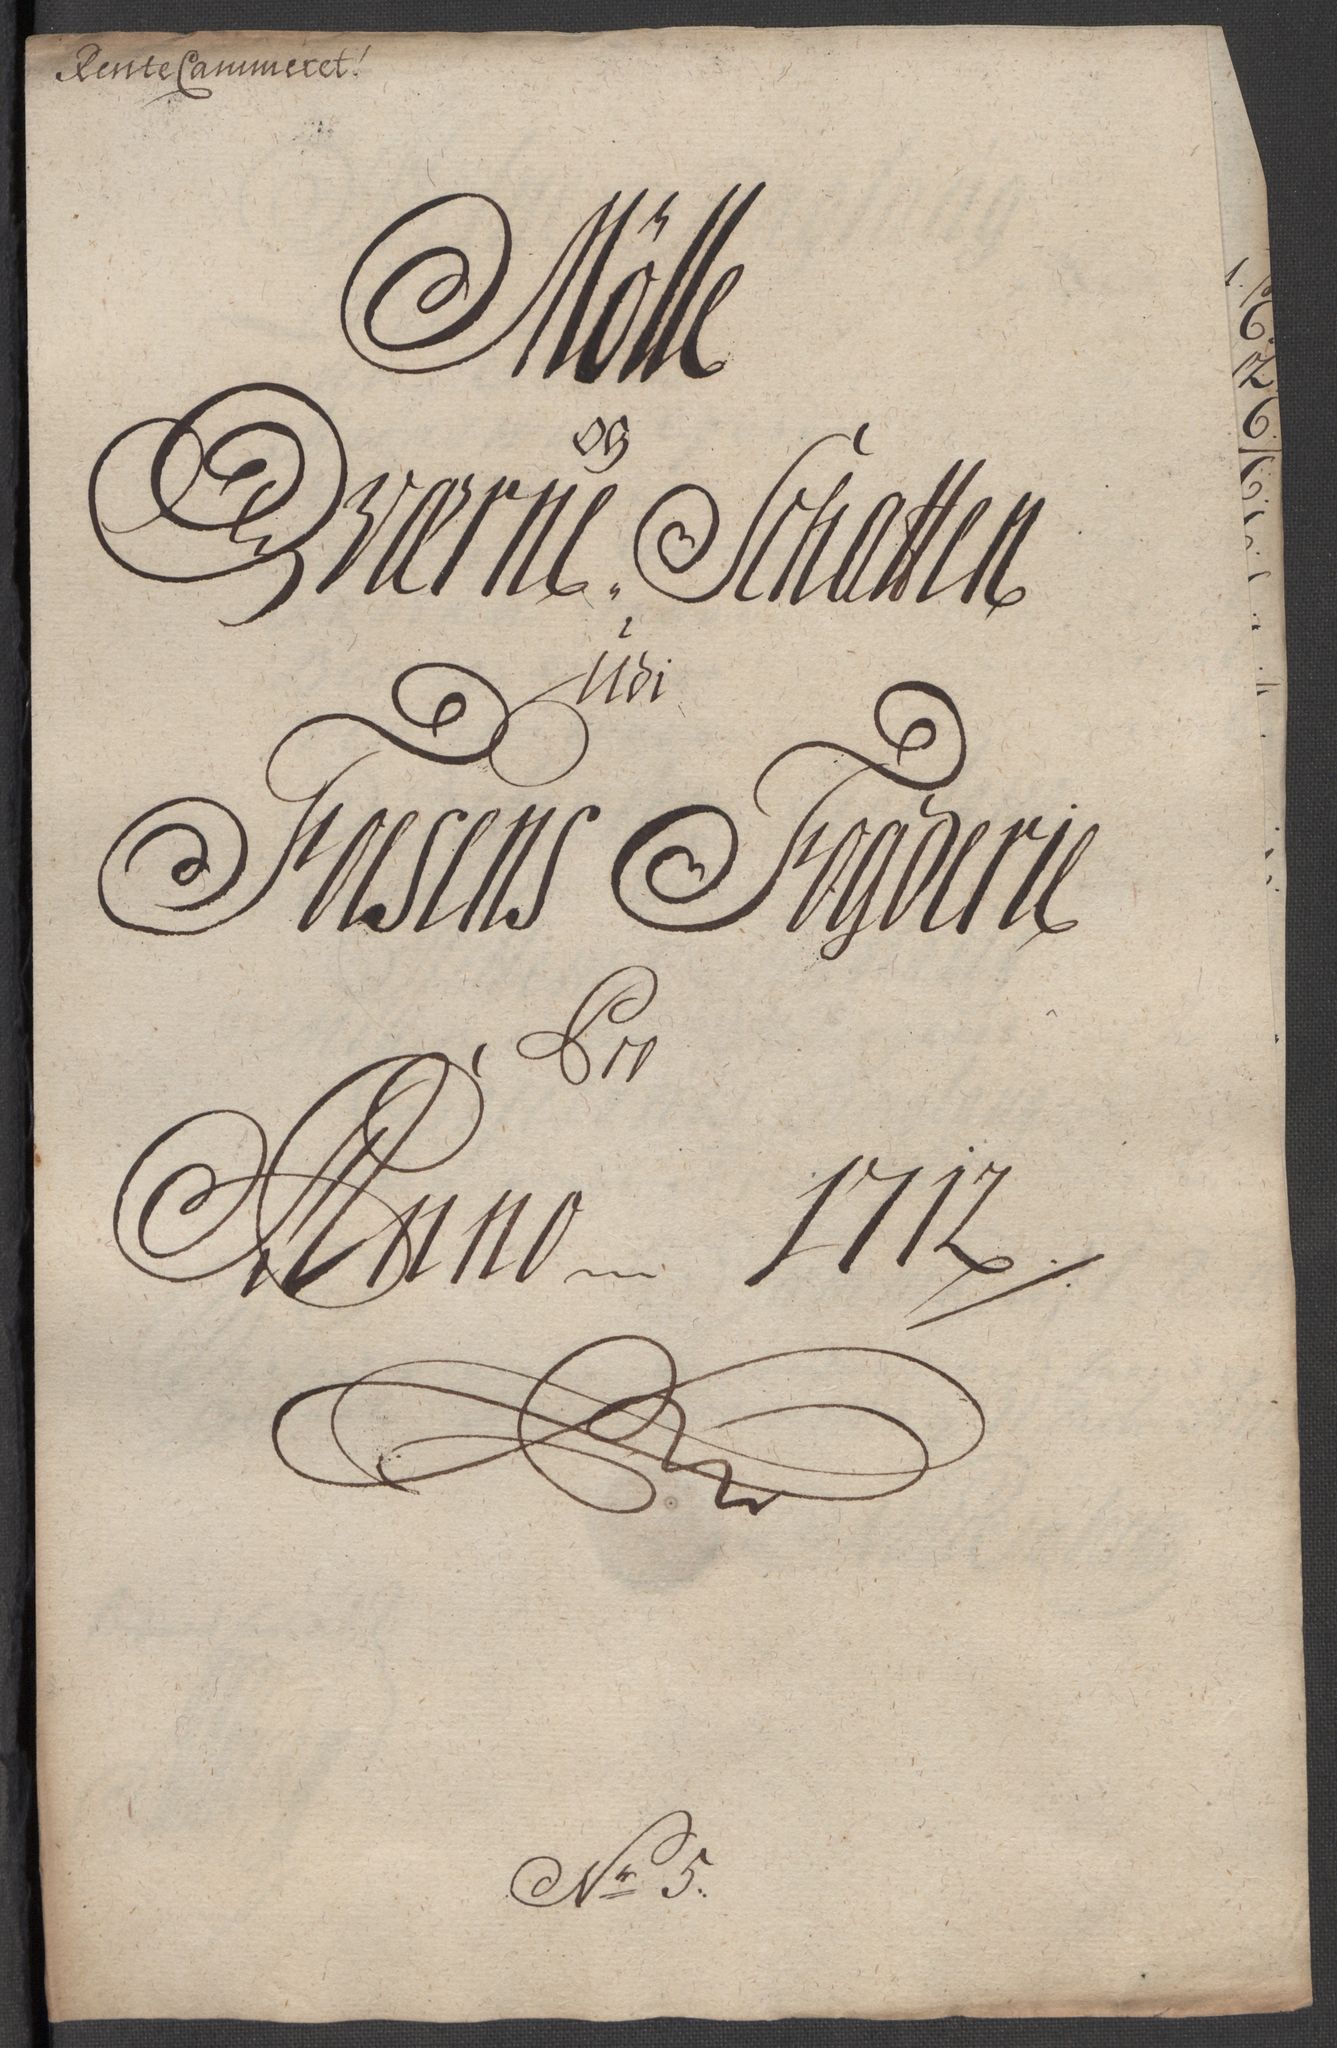 RenteCammeret!
Mölle
og
Qværne Schatten
Udi
Foesens Fogderie
Pro
Anno 1712
No 5.